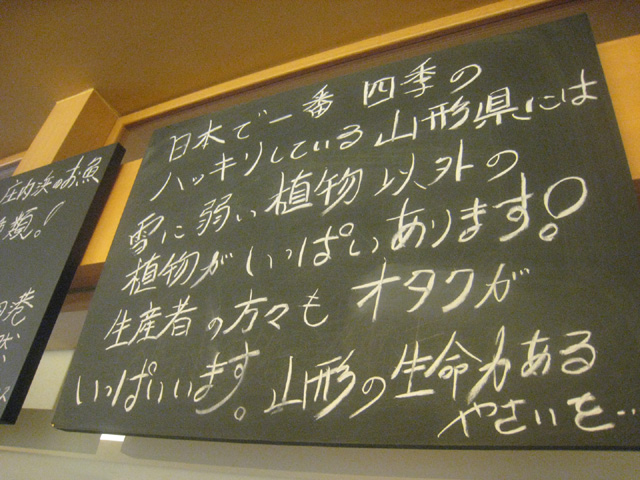 日本で一番 四季の
ハッキリしている山形県には
雪に弱い植物以外の
植物がいっぱいあります!
生産者の方々もオタクが
いっぱいいます。山形の生命力ある
やさいを…
庄内浜のお魚
類。!
港